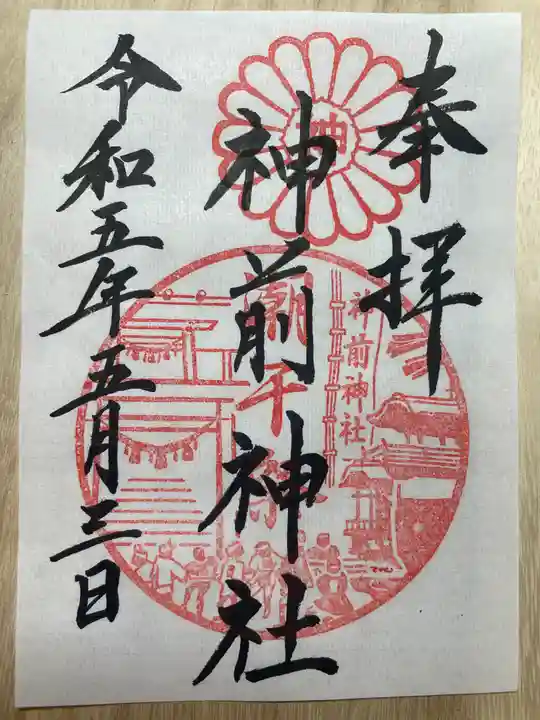 奉拝
神前神社
令和五年五月三日
神
潮干祭
神前神社